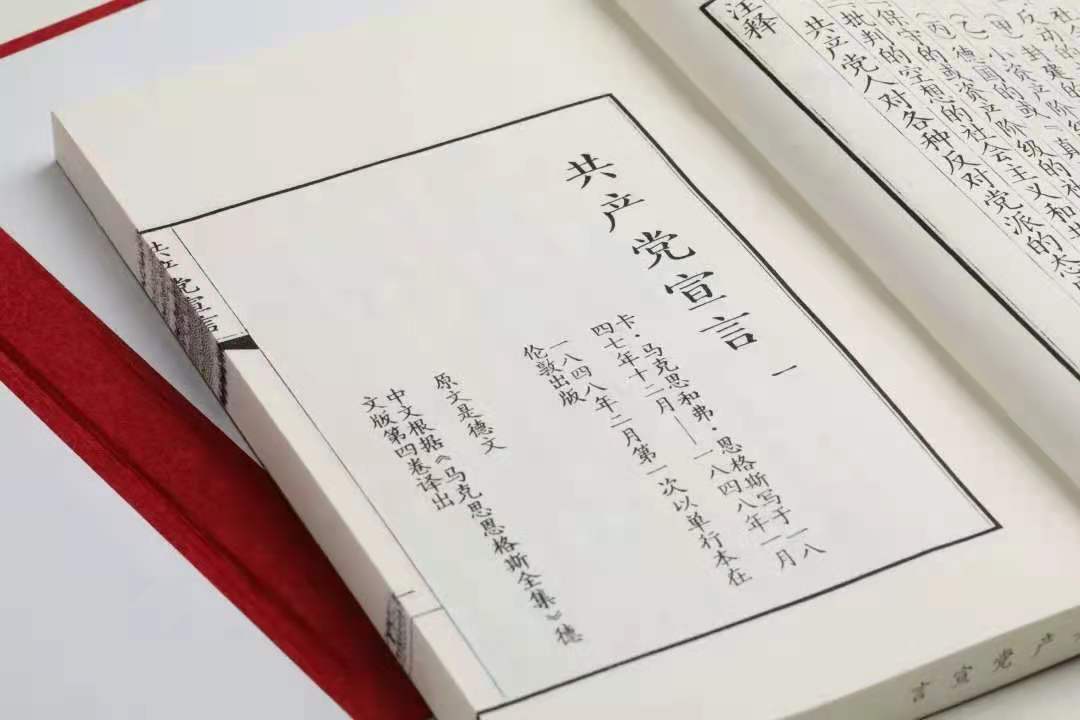 反动的
(甲)封建的
(乙)小资产阶级的社
(丙)德国的或『真
保守的或资产阶级的社
批判的空想的社会主义和共
共产党人对各种反对党派的态
注释
共产党宣言 一
卡·马克思和弗·恩格斯写于一八
四七年十二月——一八四八年一月
一八四八年二月第一次以单行本在
伦敦出版
原文是德文
中文根据《马克思恩格斯全集》德
文版第四卷译出
共产党宣言
一
产党宣言